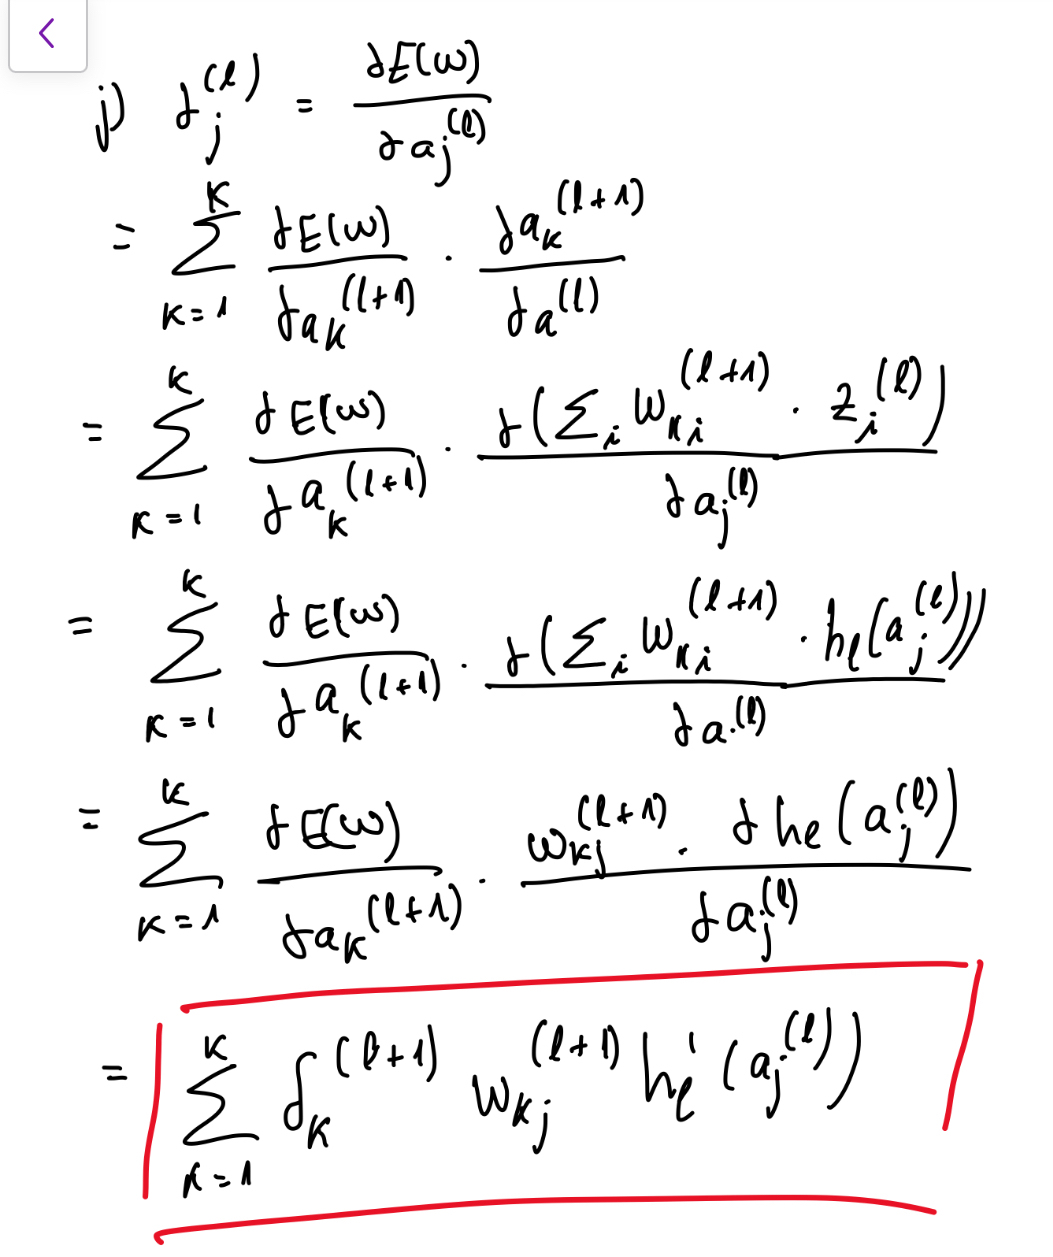 j) δ_j^{(l)} = ∂E(w) / ∂a_j^{(l)}
= \sum_{k=1}^{K} ∂E(w) / ∂a_k^{(l+1)} · ∂a_k^{(l+1)} / ∂a^{(l)}
= \sum_{k=1}^{K} ∂E(w) / ∂a_k^{(l+1)} · ∂(\sum_i w_{ki}^{(l+1)} · z_i^{(l)}) / ∂a_j^{(l)}
= \sum_{k=1}^{K} ∂E(w) / ∂a_k^{(l+1)} · ∂(\sum_i w_{ki}^{(l+1)} · h_l(a_j^{(l)})) / ∂a.^{(l)}
= \sum_{k=1}^{K} ∂E(w) / ∂a_k^{(l+1)} · w_{kj}^{(l+1)} · ∂h_l(a_j^{(l)}) / ∂a_j^{(l)}
= \sum_{k=1}^{K} δ_k^{(l+1)} w_{kj}^{(l+1)} h_l'(a_j^{(l)})